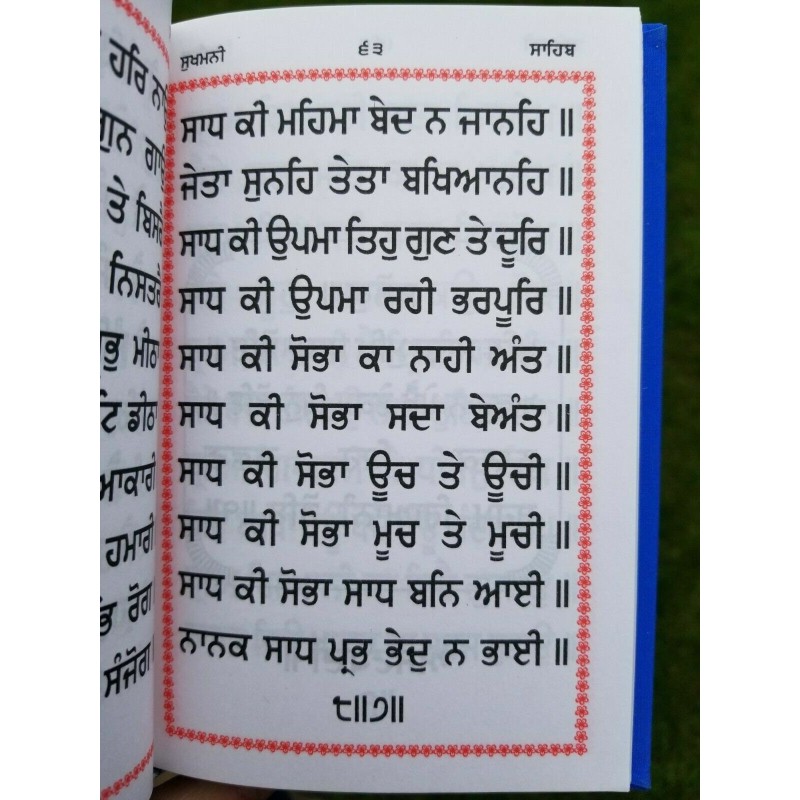 ਹਰਿ
ਗੁਨ
ਤੇ
ਨਿਸਤਰੈ
ਮੀਠਾ
ਡੀਠਾ
ਹਮਾਰੀ
ਰੋਗ
ਸੰਜੋਗ
ਸੁਖਮਨੀ ੬੩ ਸਾਹਿਬ
ਸਾਧ ਕੀ ਮਹਿਮਾ ਬੇਦ ਨ ਜਾਨਹਿ ॥
ਜੇਤਾ ਸੁਨਹਿ ਤੇਤਾ ਬਖਿਆਨਹਿ ॥
ਸਾਧ ਕੀ ਉਪਮਾ ਤਿਹੁ ਗੁਣ ਤੇ ਦੂਰਿ ॥
ਸਾਧ ਕੀ ਉਪਮਾ ਰਹੀ ਭਰਪੂਰਿ ॥
ਸਾਧ ਕੀ ਸੋਭਾ ਕਾ ਨਾਹੀ ਅੰਤ ॥
ਸਾਧ ਕੀ ਸੋਭਾ ਸਦਾ ਬੇਅੰਤ ॥
ਸਾਧ ਕੀ ਸੋਭਾ ਊਚ ਤੇ ਊਚੀ ॥
ਸਾਧ ਕੀ ਸੋਭਾ ਮੂਚ ਤੇ ਮੂਚੀ ॥
ਸਾਧ ਕੀ ਸੋਭਾ ਸਾਧ ਬਨਿ ਆਈ ॥
ਨਾਨਕ ਸਾਧ ਪ੍ਰਭ ਭੇਦੁ ਨ ਭਾਈ ॥
੮॥੭॥